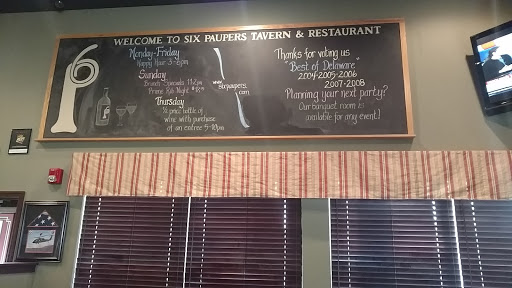 WELCOME TO SIX PAUPERS TAVERN & RESTAURANT
6
Monday-Friday
Happy Hour 3-6pm
Sunday
Brunch Specials 11-2pm
Prime Rib Night
Thursday
½ price bottle of
wine with purchase
of an entree 5-10pm
www.
sixpaupers.
com
Thanks for voting us
"Best of Delaware"
2004-2005-2006
2007-2008
Planning your next party?
Our banquet room is
available for any event!